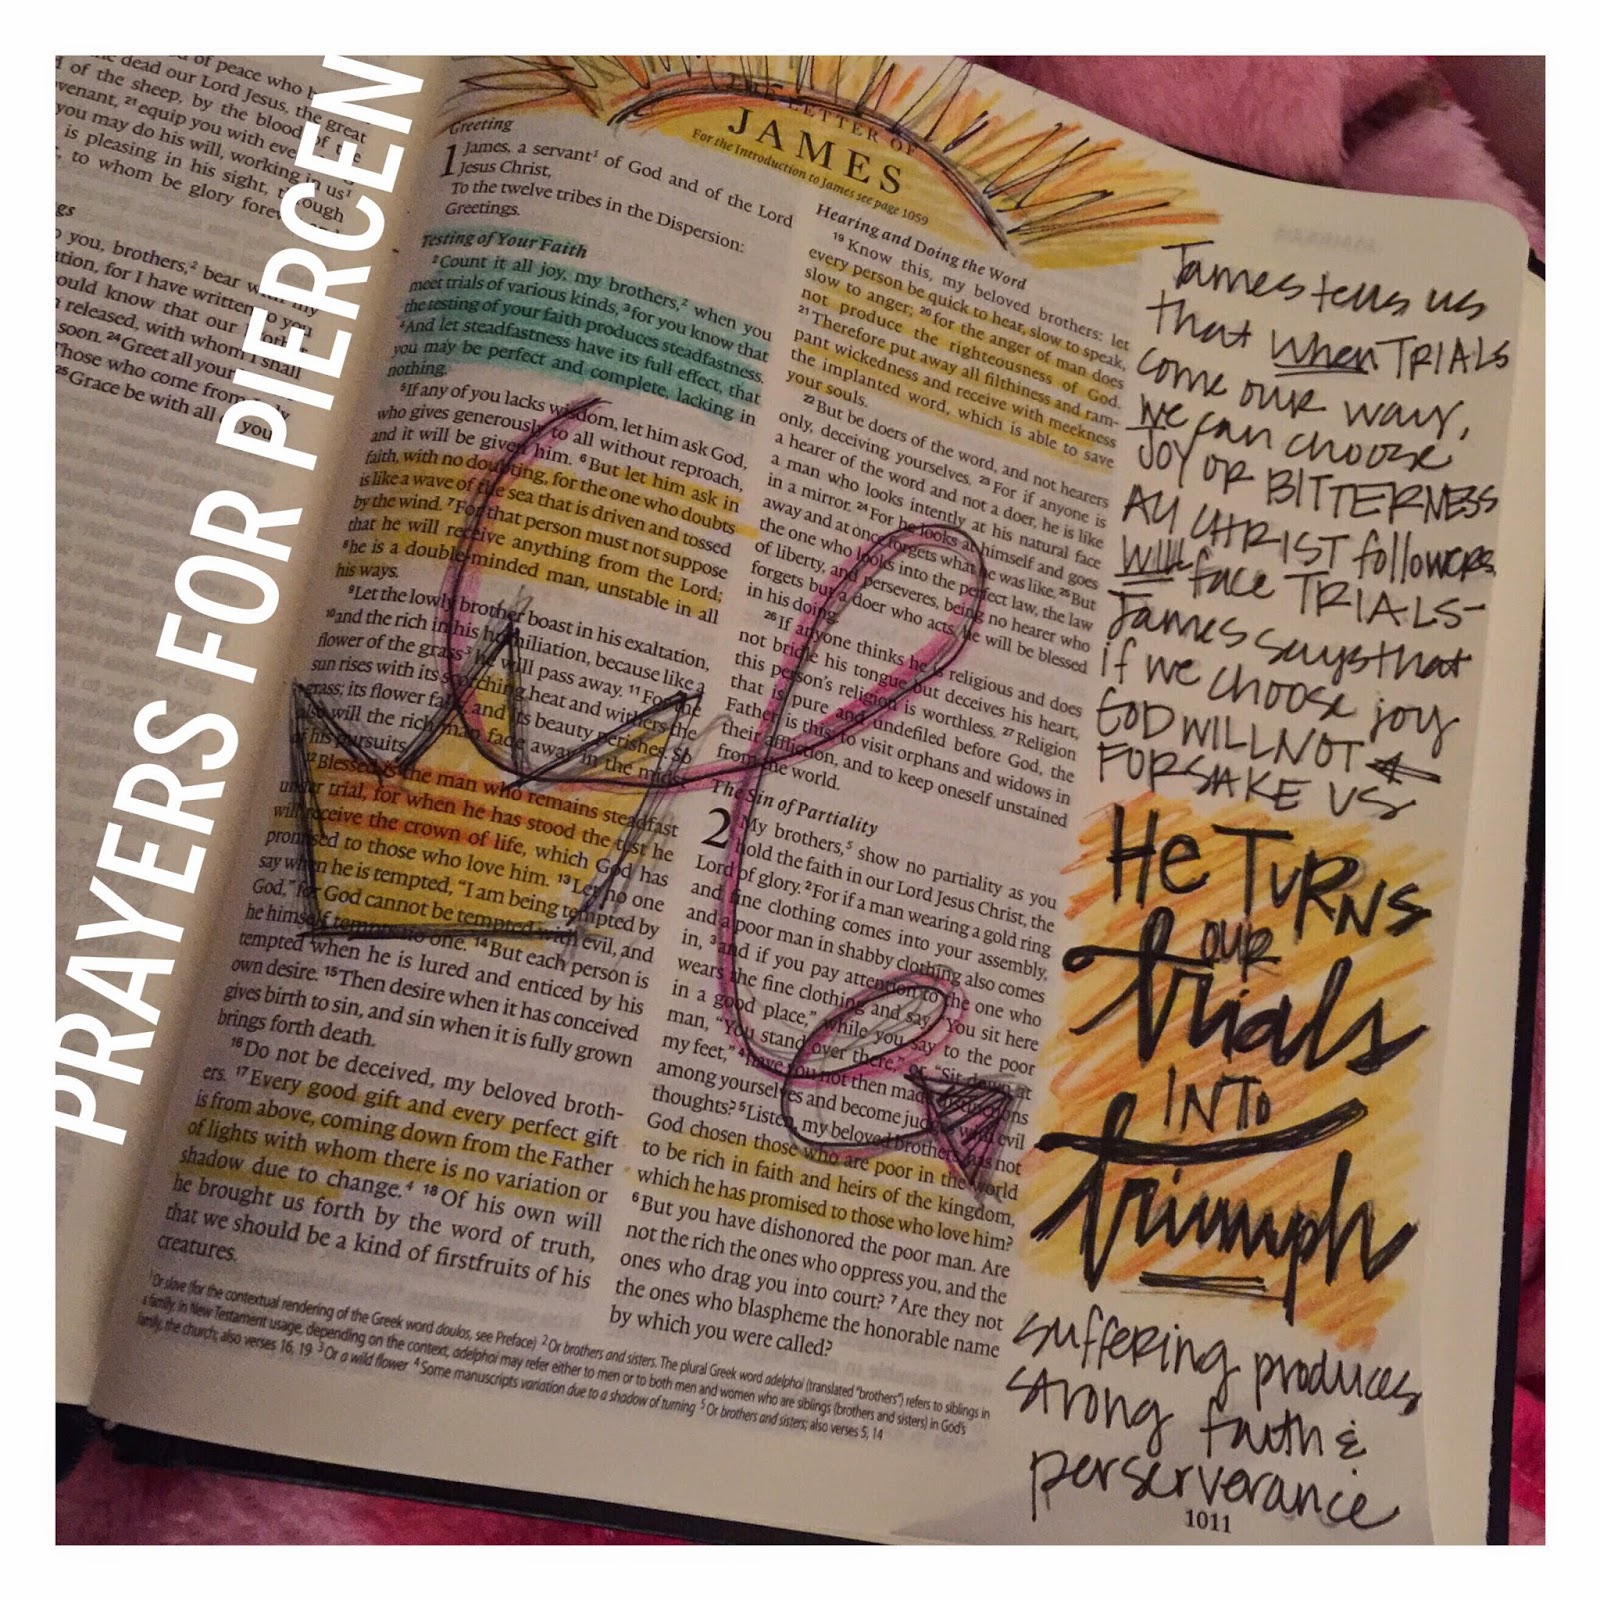 PRAYERS FOR PIERCEN
of peace who
dead our Lord Jesus, the great
of the sheep, by the blood of the
21 equip you with
you may do his will, working in us1
is pleasing in his sight, through
to whom be glory
you, brothers,2 bear with my
for I have written to you
know that our
released, with whom I shall
soon. 24 Greet all your
Those who come from Italy
25 Grace be with all of you
THE LETTER OF
JAMES
For the Introduction to James see page 1059
Greeting
1 James, a servant1 of God and of the Lord
Jesus Christ,
To the twelve tribes in the Dispersion:
Greetings.
Testing of Your Faith
2 Count it all joy, my brothers,2 when you
meet trials of various kinds, 3 for you know that
the testing of your faith produces steadfastness.
4 And let steadfastness have its full effect, that
you may be perfect and complete, lacking in
nothing.
5 If any of you lacks wisdom, let him ask God,
who gives generously to all without reproach,
and it will be given him. 6 But let him ask in
faith, with no doubting, for the one who doubts
is like a wave of the sea that is driven and tossed
by the wind. 7 For that person must not suppose
that he will receive anything from the Lord;
8 he is a double-minded man, unstable in all
his ways.
9 Let the lowly brother boast in his exaltation,
10 and the rich in his humiliation, because like a
flower of the grass3 he will pass away. 11 For the
sun rises with its scorching heat and withers the
grass; its flower falls, and its beauty perishes. So
also will the rich man fade away in the midst
of his pursuits.
12 Blessed is the man who remains steadfast
under trial, for when he has stood the test he
will receive the crown of life, which God has
promised to those who love him. 13 Let no one
say when he is tempted, “I am being tempted by
God,” for God cannot be tempted with evil, and
he himself tempts no one. 14 But each person is
tempted when he is lured and enticed by his
own desire. 15 Then desire when it has conceived
gives birth to sin, and sin when it is fully grown
brings forth death.
16 Do not be deceived, my beloved broth-
ers. 17 Every good gift and every perfect gift
is from above, coming down from the Father
of lights with whom there is no variation or
shadow due to change.4 18 Of his own will
he brought us forth by the word of truth,
that we should be a kind of firstfruits of his
creatures.
Hearing and Doing the Word
19 Know this, my beloved brothers: let
every person be quick to hear, slow to speak,
slow to anger; 20 for the anger of man does
not produce the righteousness of God.
21 Therefore put away all filthiness and ram-
pant wickedness and receive with meekness
the implanted word, which is able to save
your souls.
22 But be doers of the word, and not hearers
only, deceiving yourselves. 23 For if anyone is
a hearer of the word and not a doer, he is like
a man who looks intently at his natural face
in a mirror. 24 For he looks at himself and goes
away and at once forgets what he was like. 25 But
the one who looks into the perfect law, the law
of liberty, and perseveres, being no hearer who
forgets but a doer who acts, he will be blessed
in his doing.
26 If anyone thinks he is religious and does
not bridle his tongue but deceives his heart,
this person’s religion is worthless. 27 Religion
that is pure and undefiled before God, the
Father, is this: to visit orphans and widows in
their affliction, and to keep oneself unstained
from the world.
The Sin of Partiality
2 My brothers,5 show no partiality as you
hold the faith in our Lord Jesus Christ, the
Lord of glory. 2 For if a man wearing a gold ring
and fine clothing comes into your assembly,
and a poor man in shabby clothing also comes
in, 3 and if you pay attention to the one who
wears the fine clothing and say, “You sit here
in a good place,” while you say to the poor
man, “You stand over there,” or, “Sit down at
my feet,” 4 have you not then made distinctions
among yourselves and become judges with evil
thoughts? 5 Listen, my beloved brothers, has not
God chosen those who are poor in the world
to be rich in faith and heirs of the kingdom,
which he has promised to those who love him?
6 But you have dishonored the poor man. Are
not the rich the ones who oppress you, and the
ones who drag you into court? 7 Are they not
the ones who blaspheme the honorable name
by which you were called?
1 Or slave (for the contextual rendering of the Greek word doulos, see Preface) 2 Or brothers and sisters. The plural Greek word adelphoi (translated “brothers”) refers to siblings in
a family. In New Testament usage, depending on the context, adelphoi may refer either to men or to both men and women who are siblings (brothers and sisters) in God’s
family, the church; also verses 16, 19 3 Or a wild flower 4 Some manuscripts variation due to a shadow of turning 5 Or brothers and sisters; also verses 5, 14
James tells us
that when TRIALS
come our way,
we can choose
JOY or BITTERNESS
All CHRIST followers
WILL face TRIALS-
James says that
if we choose joy
GOD WILL NOT
FORSAKE US
HE TURNS
OUR
trials
INTO
triumph
suffering produces
strong faith &
perserverance
1011